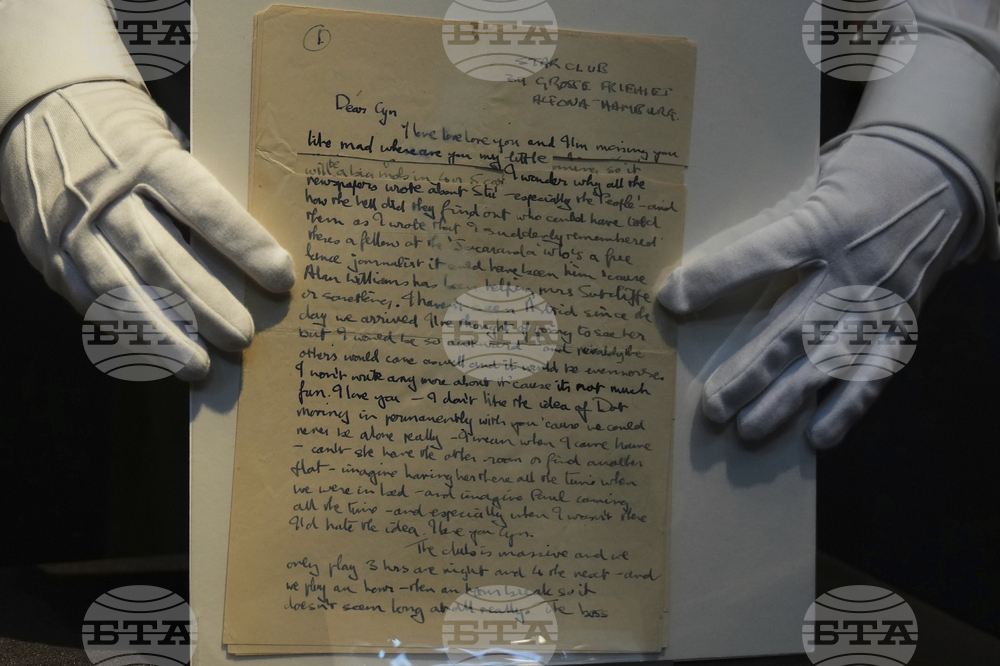 1
STAR CLUB
39 GROSSE FREIHEIT
ALTONA-HAMBURG.
Dear Cyn
I love love love you and I'm missing you
like mad where are you my little
I wonder why all the
newspapers wrote about Stu - especially the 'People' - and
how the hell did they find out who could have told
them as I wrote that I suddenly remembered
theres a fellow at the 'Jacaranda' who's a free
lance journalist it could have been him 'cause
Alan Williams has been helping Mrs Sutcliffe
or something. I haven't seen Astrid since the
day we arrived I've thought of going to see her
but I would be so awkward - and probably the
others would come as well and it would be even worse.
I won't write any more about it cause its not much
fun. I love you - I don't like the idea of Dot
moving in permanently with you 'cause we could
never be alone really - I mean when I come home
- cant she have the other room or find another
flat - imagine having her there all the time when
we were in bed - and imagine Paul coming
all the time - and especially when I wasn't there
I'd hate the idea. I love you Cyn.
The club is massive and we
only play 3 hrs one night and 4 the next - and
we play an hour - then an hour break so it
doesn't seem long at all really. The boss
BTA
BTA
BTA
BTA
BTA
BTA
BTA
BTA
BTA